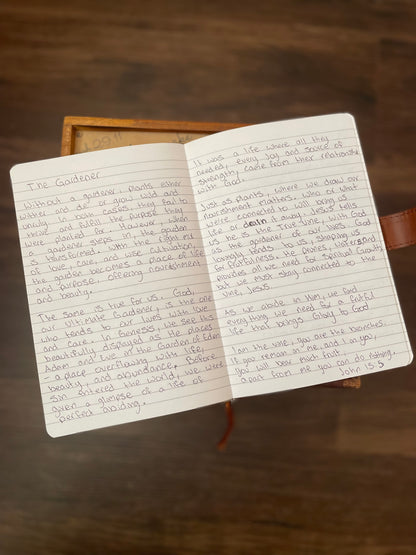 The Gardener
Without a gardener, plants either
wither and die or grow wild and
unruly. In both cases they fail to
thrive and fulfill the purpose they
were planted for. However, when
a gardener steps in, the garden
is transformed. With the right mix
of love, care, and use of
the garden becomes a place of life
and purpose, offering nourishment
and beauty.
The same is true for us. God,
our Ultimate Gardener, is the one
who tends to our lives with love
and care. In Genesis, we see this
beautifully displayed as He places
Adam and Eve in the Garden of Eden
- a place overflowing with life,
beauty, and abundance. Before
sin entered the world, we were
given a glimpse of a life of
perfect abiding.
It was a life where all they
needed, every joy and source of
strength came from their relationship
with God.
Just as plants, where we draw our
nourishment matters. Who or what
we're connected to will bring us
life or drain it away. Jesus tells
us he is the True Vine, with God
as the gardener. In our lives God
lovingly tends to us, shaping us
for fruitfulness. He prunes, waters and
provides all we need for spiritual growth
but we must stay connected to the
Vine, Jesus.
As we abide in Him, we find
everything we need for a fruitful
life that brings Glory to God
I am the vine, you are the branches.
If you remain in me, and I in you,
you will bear much fruit;
apart from me you can do nothing.
John 15:5